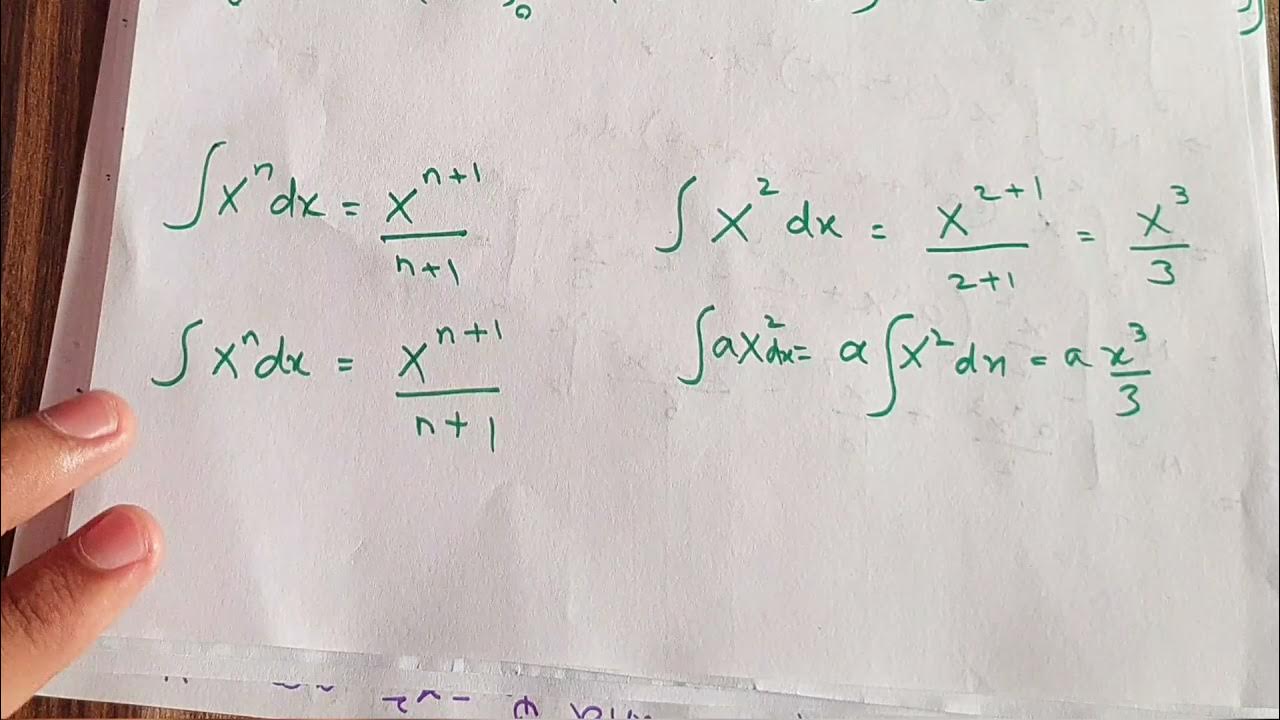 ∫xⁿdx = xⁿ⁺¹/n+1
∫x²dx = x²⁺¹/2+1 = x³/3
∫xⁿdx = xⁿ⁺¹/n+1
∫ax²dx = a∫x²dx = a x³/3